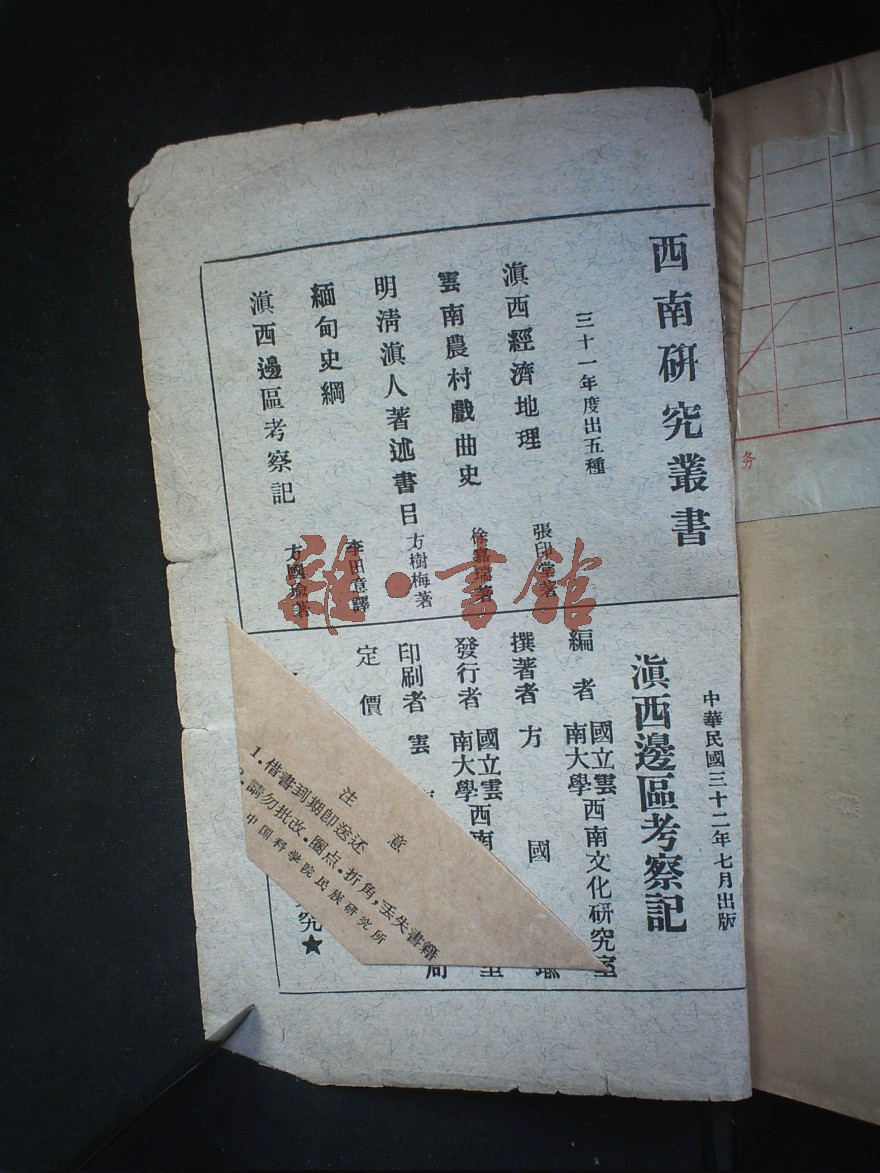 西南研究叢書
三十一年度出五種
滇西經濟地理 張印堂著
雲南農村戲曲史 徐嘉瑞著
明清滇人著述書目 方樹梅著
緬甸史綱 李田意譯
滇西邊區考察記 方國瑜著
中華民國三十二年七月出版
滇西邊區考察記
編者 國立雲南大學西南文化研究室
撰著者 方國瑜
發行者 國立雲南大學西南 室
印刷者 雲 局
定價
究★
注意
1.借書到期卽送还
請勿批改.圈点.折角,丢失書籍
中国科学院民族研究所
雜·書館
务